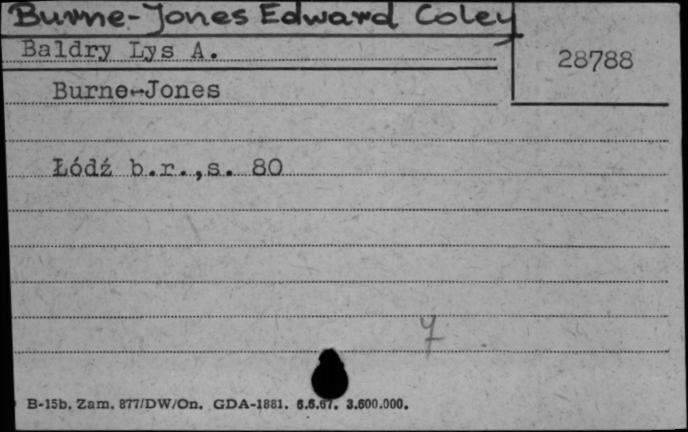 Burne-Jones Edward Coley
Baldry Lys A.
28788
Burne-Jones
Łódź b.r.,s. 80
7
B-15b. Zam. 877/DW/On. GDA-1881. 6.6.67. 3.600.000.